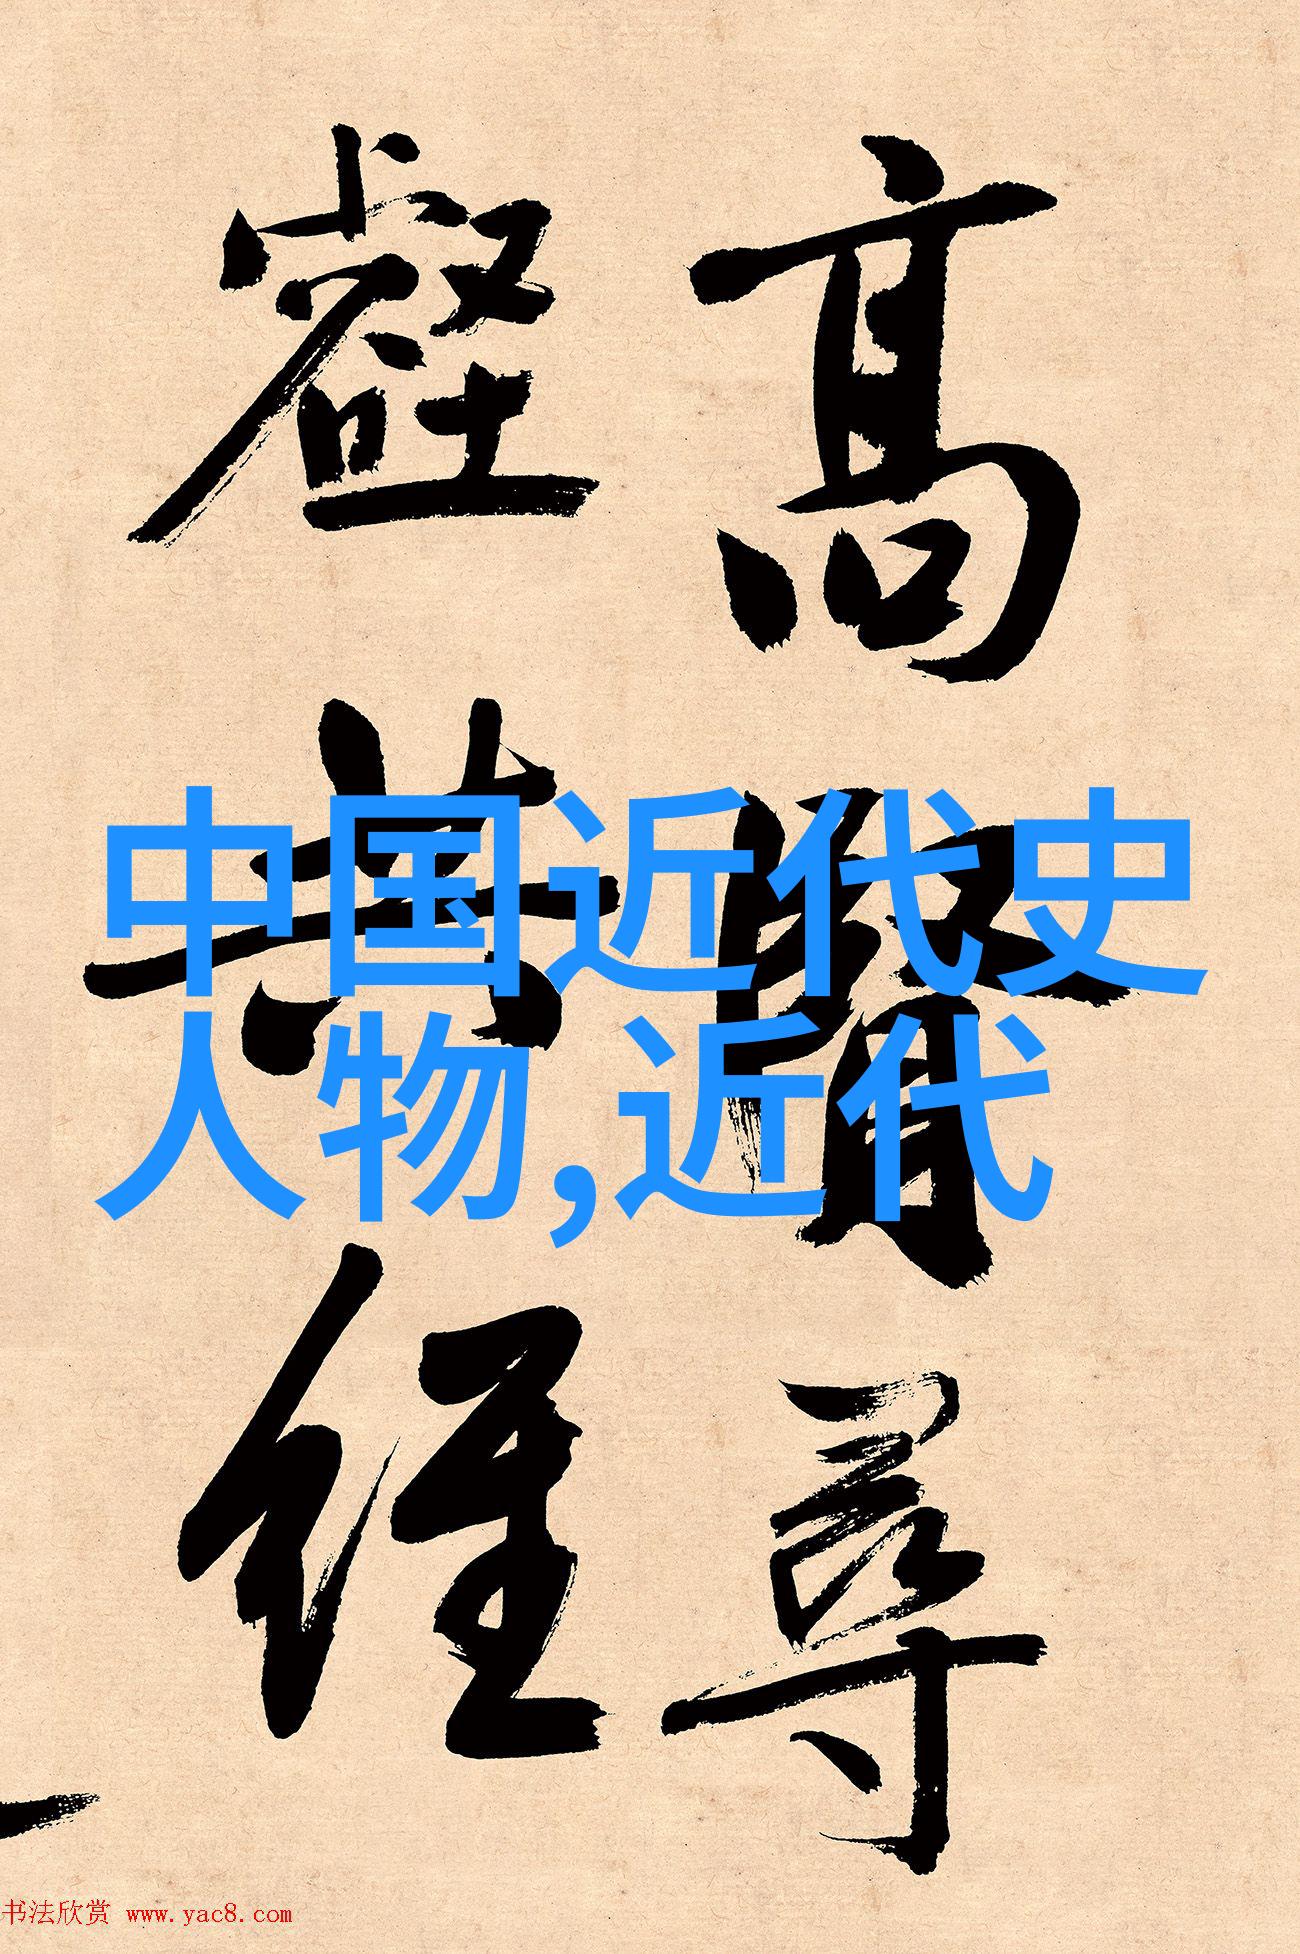 高賢尋
壑共經
中国近代史
人物,近代
书法欣赏 www.yac8.com